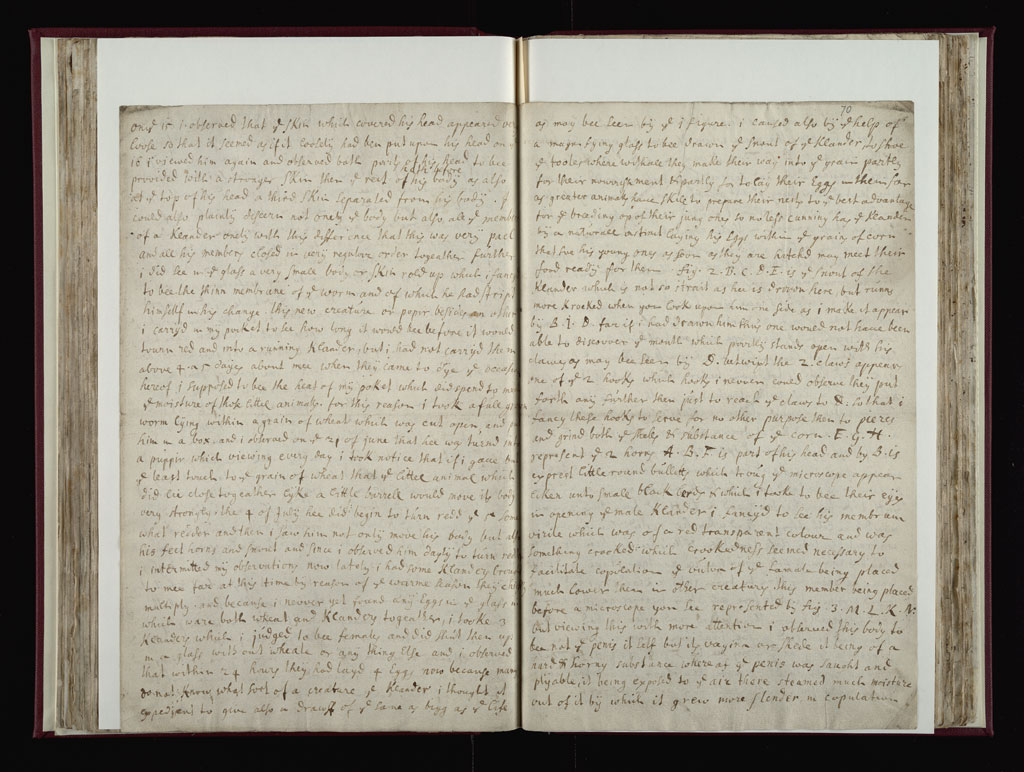 on yᵉ 15 i observed that yᵉ skin which covered his head appeared
loose so that it seemed as if it loosely had ben put upon his head on yᵉ
16 i viewed him again and observed both parts of his head to bee
provided with a stronger skin then yᵉ rest of his body as also
at yᵉ top of his head a third skin separated from his body. I
could also plainly descern not onely yᵉ body but also all yᵉ
of a Klander onely with this difference that this was very
and all his members closed in very regular order together further
i did see in yᵉ glass a very small body or skin rold up which i
to bee the thinn membrane of yᵉ worm and of which he had stript
himself in his change. this new creature or popir besides an other
i carryd in my pocket to see how long it would bee before it would
tourn red and into a running Klander, but i had not carryd them
above 4 a 5 dayes about mee when they came to dye yᵉ
hereof i supposed to bee the heat of my poket which did spend to
yᵉ moisture of those littel animals. for this reason i took a full
worm lying within a grain of wheat which was cut open, and
him in a box, and i observed on yᵉ 25 of June that hee was turnd
a puppir which viewing every day i took notice that if i gave
yᵉ least touch to yᵉ grain of wheat that yᵉ littel animal which
did lie close togeather lyke a little barrell would move its body
very strongly. the 4 of July hee did begin to turn redd yᵉ 5
what redder and then i saw him not only move his body but
his feet horns and snout and since i observed him dayly to turn
i intermitted my observations now lately i had some Klanders
to mee for at this time by reason of yᵉ warme season they
multiply. and because i never yet found any Eggs in yᵉ glass
which ware both wheat and Klanders togeather, i tooke 3
Klanders which i judged to bee females and did shutt them up
in a glass without wheate or any thing else and i observed
that within 24 hours they had layd 4 Eggs now because
do not know what sort of a creature yᵉ Klander i thought it
expedient to give also a draw of yᵉ same as bigg as yᵉ life
70
as may bee seen by yᵉ 1 figure. i caused also by yᵉ help of
a magnifying glass to bee drawn yᵉ snout of yᵉ Klander to shoe
yᵉ tooles where withall they made their way into yᵉ grain partly
for their nourishment & partly for to lay their Eggs in them for
as greater animals have skill to prepare their nests to yᵉ best advantage
for yᵉ breeding up of their jung ones so no less cunning has yᵉ Klander
by a naturall instinct laying his Eggs within yᵉ grain of corn
that soe his young ones as soon as they are hatchd may meet their
food ready for them. fig. 2. B. C. D. E. is yᵉ snout of the
Klander which is not so strait as hee is drawn here, but runns
more krooked when you look upon him one side as i make it appear
by B. I. D. for if i had drawn him thus one would not have been
able to discover yᵉ mouth which partly stands open with his
clawes as may bee seen by D. betwixt the 2 claws appear
one of yᵉ 2 hooks which hooks i never could observe they put
forth any further then just to reach yᵉ claws to so that i
fancy these hooks to serve for no other purpose then to pierce
and grind both yᵉ shells & substance of yᵉ corn. E. G. H.
represent yᵉ 2 horns A. B. F. is part of his head and by B. is
exprest little round bulletts which trough yᵉ microscope appear
liken unto small black & which i tooke to bee their eyes
in opening yᵉ male Klander i to see his membrum
virile which was of a red transparent colour and was
something crooked which crookedness seemed necessary to
facilitate copulation yᵉ of yᵉ famale being placed
much lower then in other creatures this member being placed
before a microscope you see represented by fig 3. M. L. K. N.
but viewing this with more attention i observed this body to
bee not yᵉ penis it self but its vagina or shede it being of a
hard & horny substance whereas yᵉ penis was and
plyable, it being exposed to yᵉ air there steemed much moisture
out of it by which it grew more slender in copulation